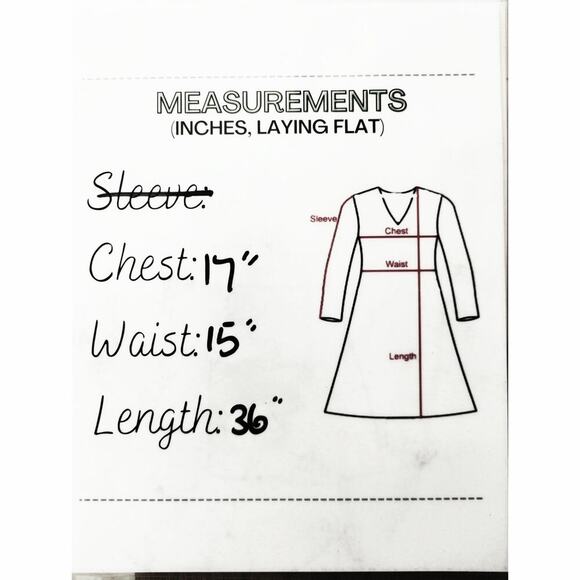 MEASUREMENTS
(INCHES, LAYING FLAT)
Sleeve:
Chest: 17"
Waist: 15"
Length: 36"
Sleeve
Chest
Waist
Length